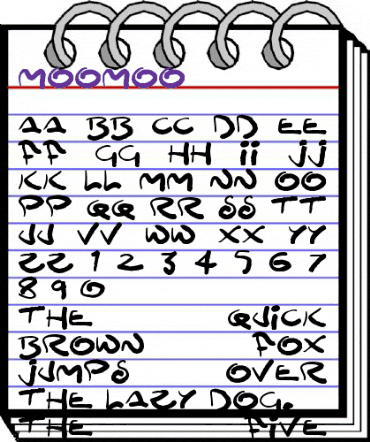 MOOMOO
AA BB CC DD EE
FF GG HH ii JJ
KK LL MM NN OO
PP QQ RR SS TT
UU VV WW XX YY
ZZ 1 2 3 4 5 6 7
8 9 0
THE QUiCK
BROWN FOX
JUMPS OVER
THE LAZY DOG.
THE FiVE